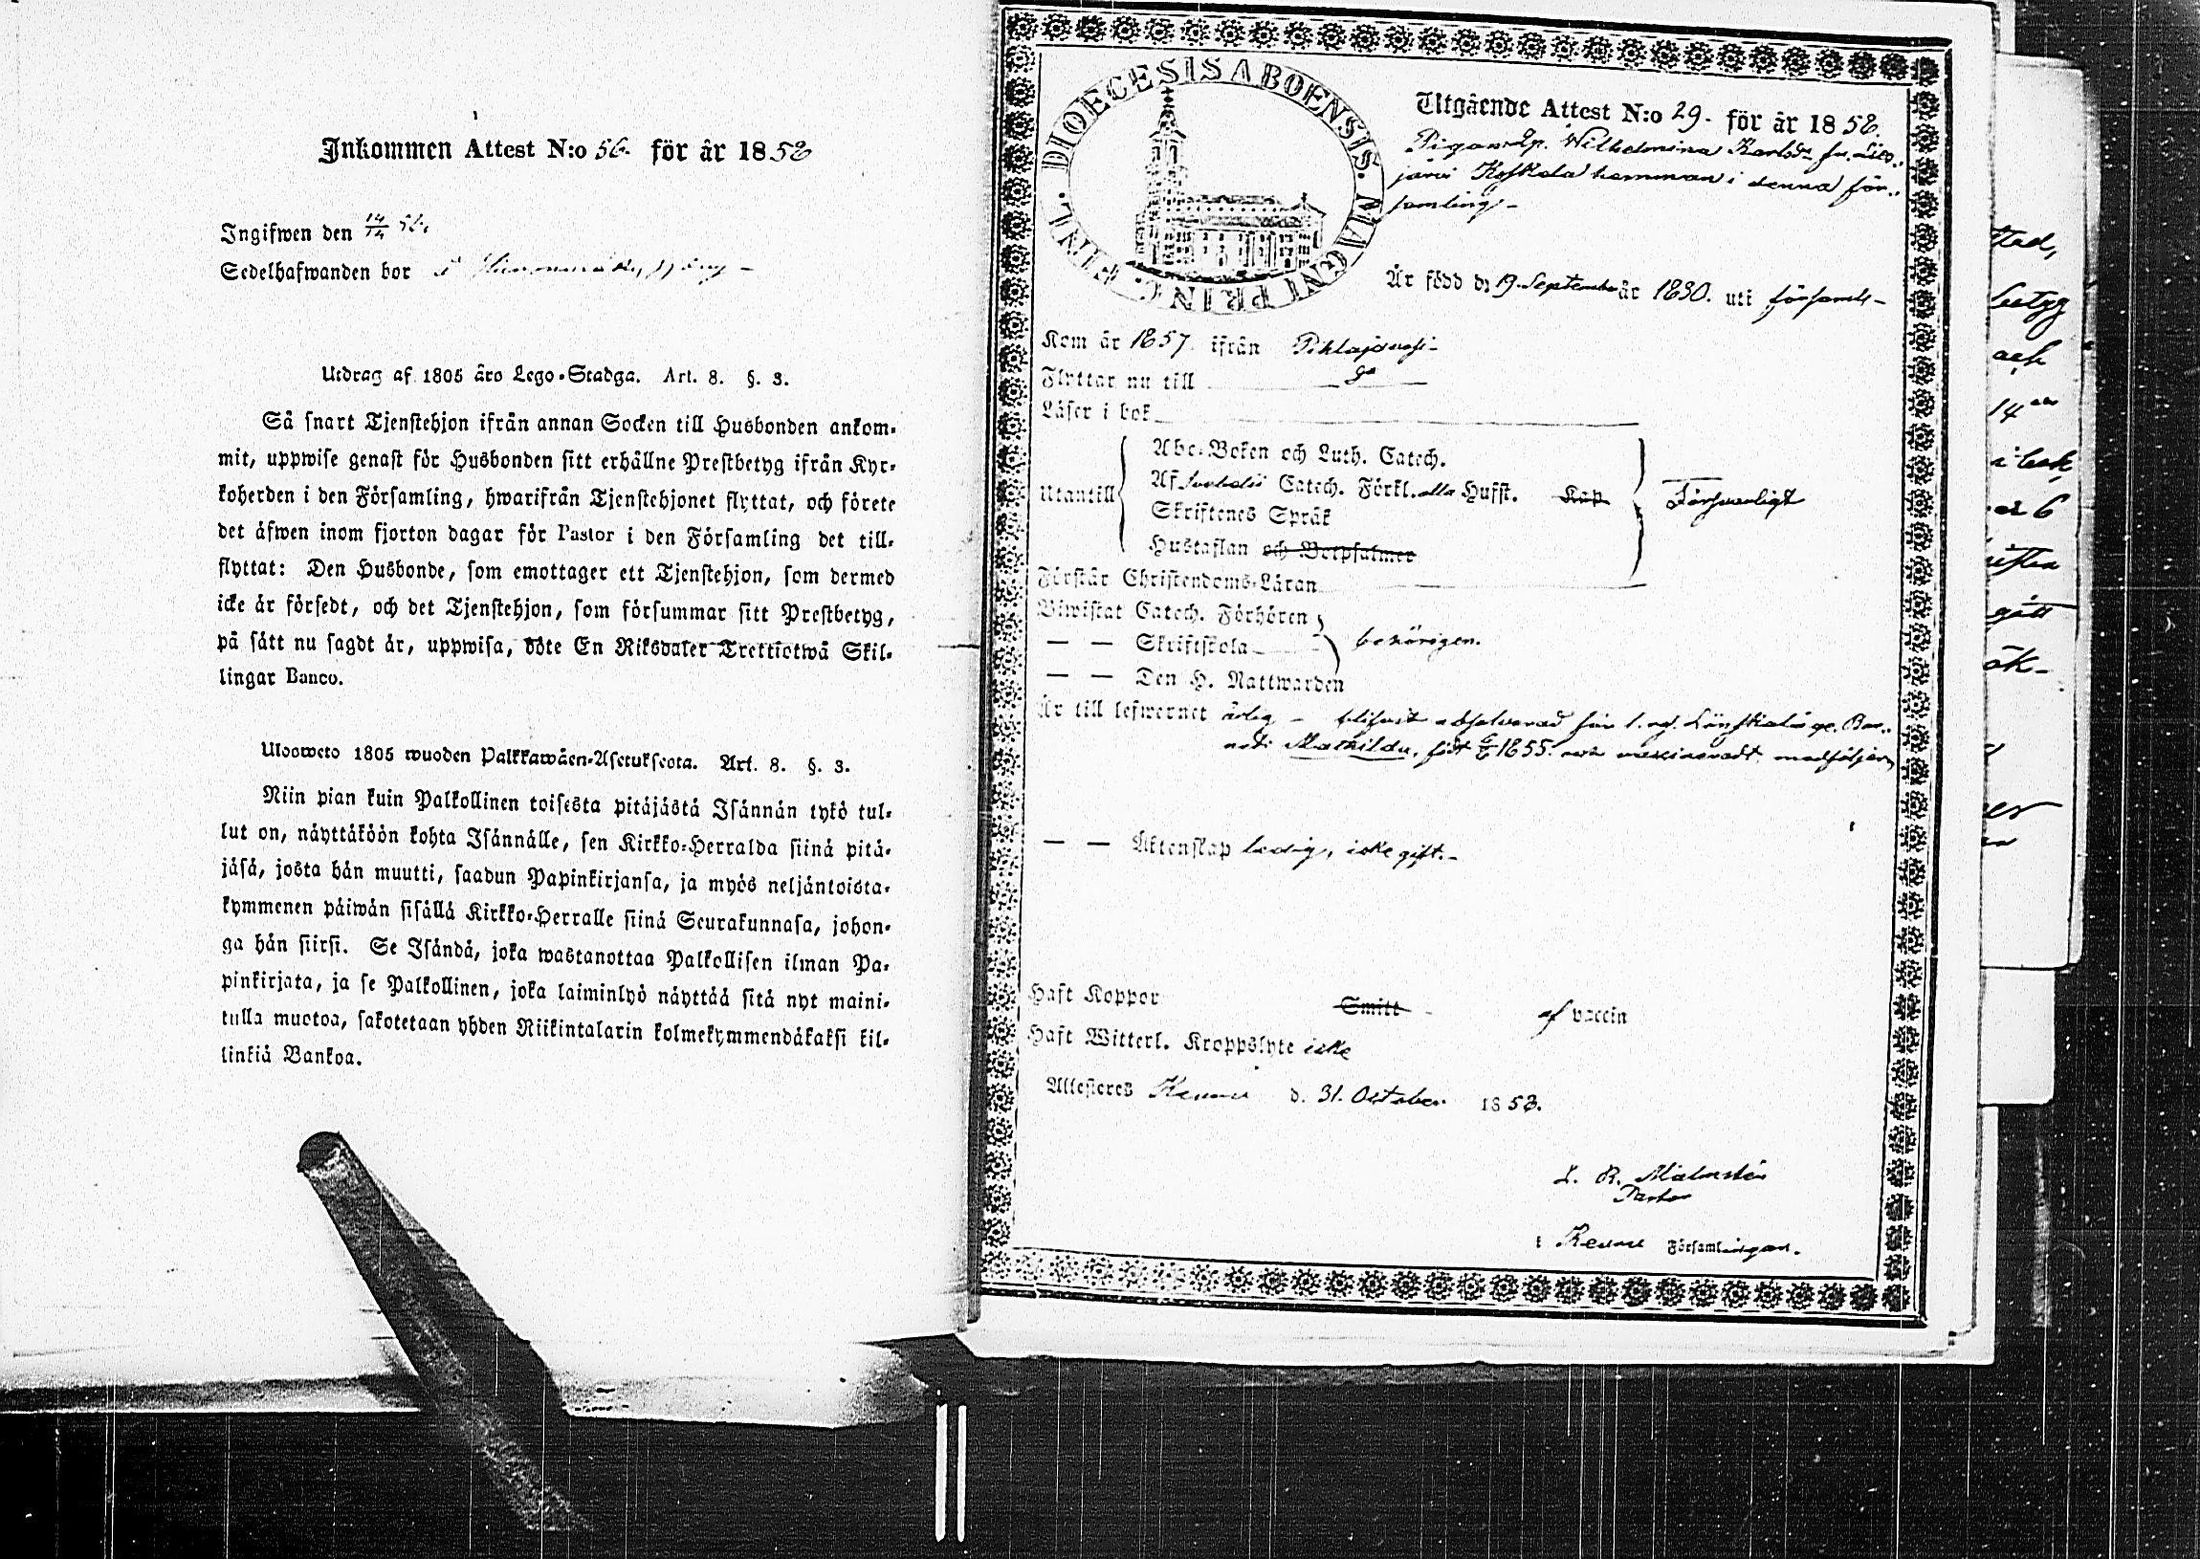 Inkommen Attest N:o 56. för år 1858
Ingifwen den 14/11 58.
Sedelhafwanden bor
Utdrag af 1805 års Lego-Stadga. Art. 8. §. 3.
Så snart Tjenstehjon ifrån annan Socken till Husbonden ankom-
mit, uppwise genast för Husbonden sitt erhållne Prestbetyg ifrån Kyr-
koherden i den Församling, hwarifrån Tjenstehjonet flyttat, och förete
det äfwen inom fjorton dagar för Pastor i den Församling det till-
flyttat: Den Husbonde, som emottager ett Tjenstehjon, som dermed
icke är försedt, och det Tjenstehjon, som försummar sitt Prestbetyg,
på sätt nu sagdt är, uppwisa, böte En Riksdaler Trettiotwå Skil-
lingar Banco.
Ulosweto 1805 wuoden Palkkawäen-Asetuksesta. Art. 8. §. 3.
Niin pian kuin Palkollinen toisesta pitäjästä Isännän tykö tul-
lut on, näyttäköön kohta Isännälle, sen Kirkko-Herralda siinä pitä-
jäsä, josta hän muutti, saadun Papinkirjansa, ja myös neljäntoista-
kymmenen päiwän sisällä Kirkko-Herralle siinä Seurakunnasa, johon-
ga hän siirsi. Se Isändä, joka wastanottaa Palkollisen ilman Pa-
pinkirjata, ja se Palkollinen, joka laiminlyö näyttää sitä nyt maini-
tulla muotoa, sakotetaan yhden Riikintalarin kolmekymmendäkaksi kil-
linkiä Bankoa.
DIOECESIS ABOENSIS. MAGNI PRINC. FINL.
Utgående Attest N:o 29. för år 1858.
Pigan Wilhelmina Karlsdr fr.
järvi Koskela hemman i denna för-
samling.
Är född d. 19. September år 1830. uti församl-
Kom år 1857 ifrån Pihlajavesi
Flyttar nu till do
Läser i bok
Utantill
Abc-Boken och Luth. Catech.
Af Svebelii Catech. Förkl. alla Hufst. Kap
Skriftenes Språk
Hustaflan och Botpsalmer
Försvarligt
Förstår Christendoms-Läran
Biwistat Catech. Förhören
— — Skriftskola
behörigen.
— — Den H. Nattwarden
Är till lefwernet ärlig - blifvit absolverad för 1. ug. Lönskaläge. Bar-
net: Mathilda, född 1855. och vaccineradt medföljer
— — Äktenskap ledig, icke gift.
Haft Koppor Smitt af vaccin
Haft Witterl. Kroppslyte icke
Attesteras Keuru d. 31. October 1858.
L. R. Malmstén
Pastor
i Keuru Församlingar.